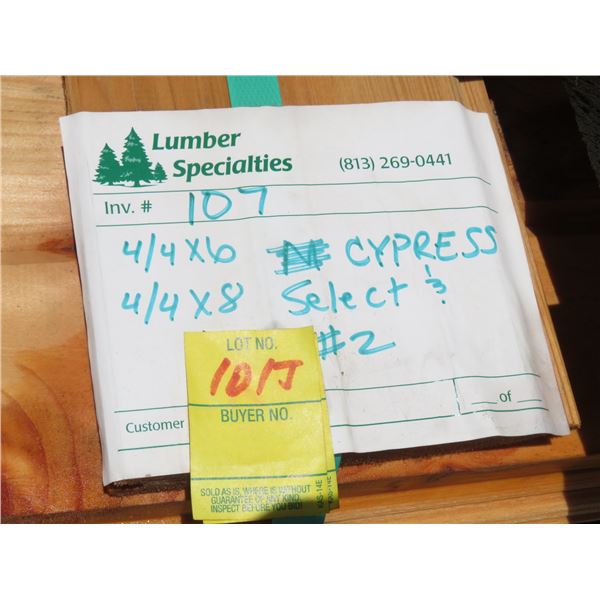 Lumber
Specialties
(813) 269-0441
Inv. # 107
4/4 x 6 CYPRESS
4/4 x 8 Select &
#2
LOT NO.
101J
BUYER NO.
Customer
of
SOLD AS IS, WHERE IS WITHOUT
GUARANTEE OF ANY KIND.
INSPECT BEFORE YOU BID!